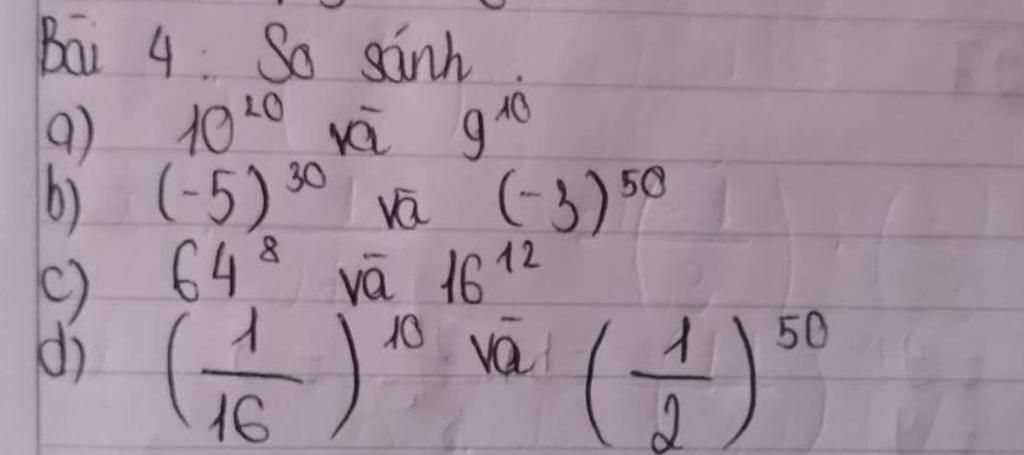 Bài 4: So sánh.
a) 10^20 và 9^10
b) (-5)^30 và (-3)^50
c) 64^8 và 16^12
d) (1/16)^10 và (1/2)^50